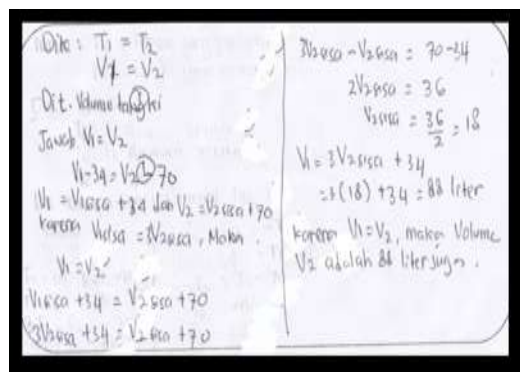 Dik : T1 = T2
V1 = V2
Dit. Volume tangki
Jawab V1 = V2
V1-34 = V2-70
V1 = V1sisa +34 dan V2 = V2sisa +70
karena V1sisa = 3V2sisa, Maka
V1 = V2
V1sisa +34 = V2sisa +70
3V2sisa +34 = V2sisa +70
3V2sisa - V2sisa = 70-34
2V2sisa = 36
V2sisa = 36/2 = 18
V1 = 3V2sisa + 34
= 3(18) + 34 = 88 liter
karena V1 = V2, maka Volume
V2 adalah 88 liter juga.